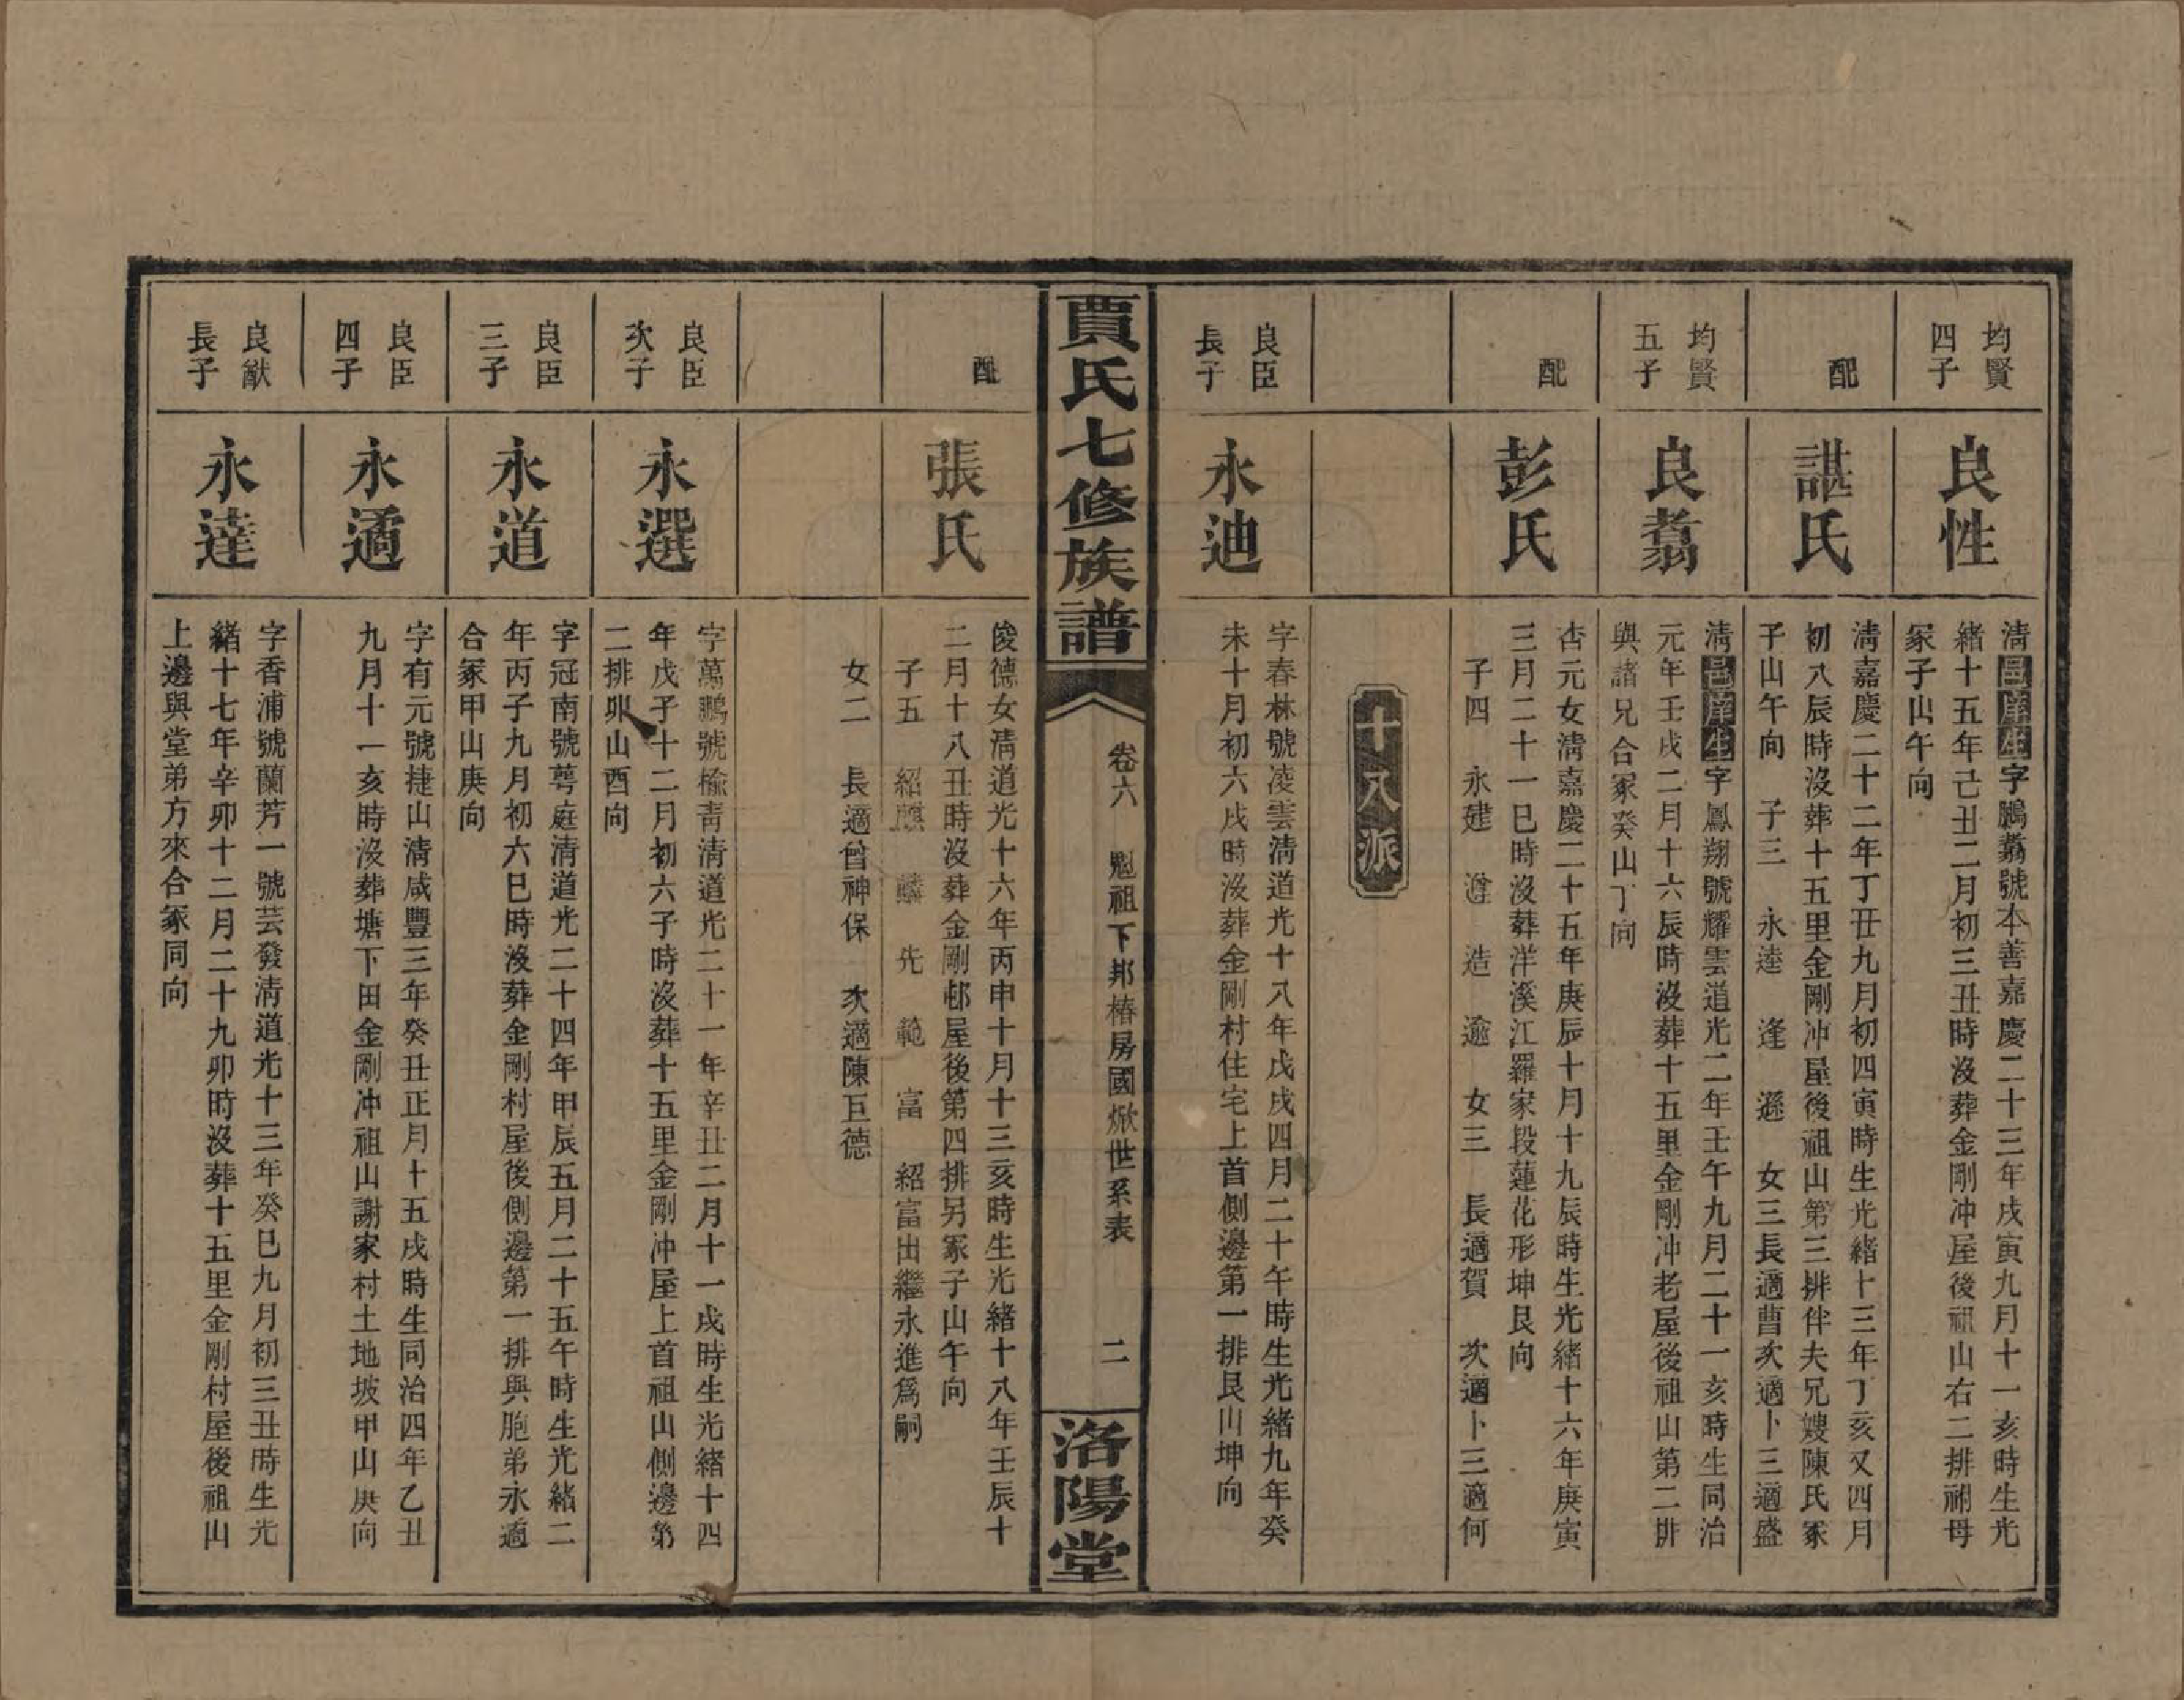 均賢
四子
良性
淸邑庠生字鵬翥號本善嘉慶二十三年戌寅九月十一亥時生光
緒十五年己丑二月初三丑時沒葬金剛冲屋後祖山右二排祔母
冢子山午向
配
諶氏
淸嘉慶二十二年丁丑九月初四寅時生光緒十三年丁亥又四月
初八辰時沒葬十五里金剛冲屋後祖山第三排伴夫兄嫂陳氏冢
子山午向 子三 永逵 逢 遜 女三長適曹次適卜三適盛
均賢
五子
良翥
淸邑庠生字鳳翔號耀雲道光二年壬午九月二十一亥時生同治
元年壬戌二月十六辰時沒葬十五里金剛冲老屋後祖山第二排
與諸兄合冢癸山丁向
配
彭氏
杏元女淸嘉慶二十五年庚辰十月十九辰時生光緒十六年庚寅
三月二十一巳時沒葬洋溪江羅家段蓮花形坤艮向
子四 永建 造 逾 女三 長適賀 次適卜三適何
十八派
良臣
長子
永迪
字春林號凌雲淸道光十八年戊戌四月二十午時生光緒九年癸
未十月初六戌時沒葬金剛村住宅上首側邊第一排艮山坤向
賈氏七修族譜
卷六 魁祖下邦椿房國焮世系表 二
洛陽堂
配
張氏
俊德女淸道光十六年丙申十月十三亥時生光緒十八年壬辰十
二月十八丑時沒葬金剛邨屋後第四排另冢子山午向
子五 紹麒 麟 先 範 富 紹富出繼永進爲嗣
女二 長適曾神保 次適陳巨德
良臣
次子
永選
字萬鵬號楡靑淸道光二十一年辛丑二月十一戌時生光緒十四
年戊子十二月初六子時沒葬十五里金剛冲屋上首祖山側邊第
二排卯山酉向
良臣
三子
永道
字冠南號萼庭淸道光二十四年甲辰五月二十五午時生光緒二
年丙子九月初六巳時沒葬金剛村屋後側邊第一排與胞弟永適
合冢甲山庚向
良臣
四子
永適
字有元號捷山淸咸豐三年癸丑正月十五戌時生同治四年乙丑
九月十一亥時沒葬塘下田金剛冲祖山謝家村土地坡甲山庚向
良猷
長子
永達
字香浦號蘭芳一號芸發淸道光十三年癸巳九月初三丑時生光
緒十七年辛卯十二月二十九卯時沒葬十五里金剛村屋後祖山
上邊與堂弟方來合冢同向